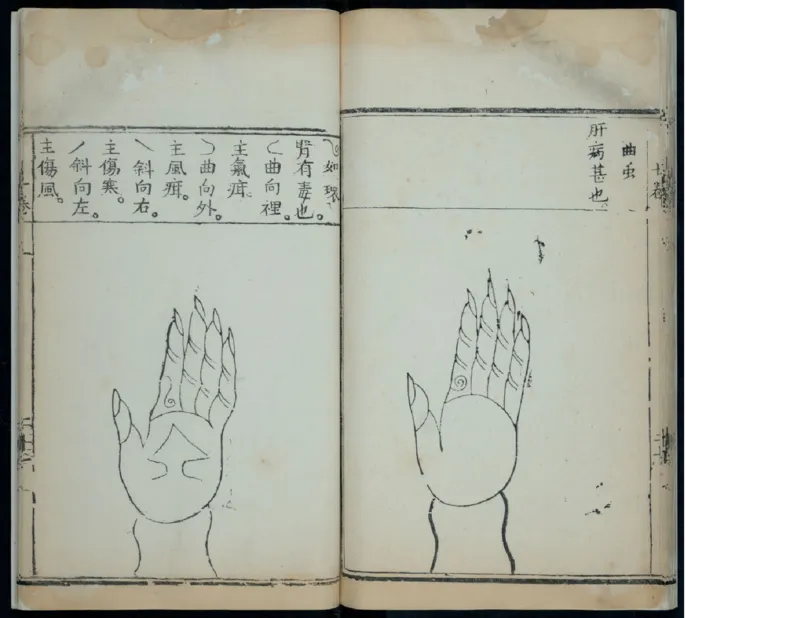 曲虫
肝病甚也。
如環
腎有毒也。
曲向裡。
主氣疳。
曲向外。
主風疳。
斜向右。
主傷寒。
斜向左。
主傷風。